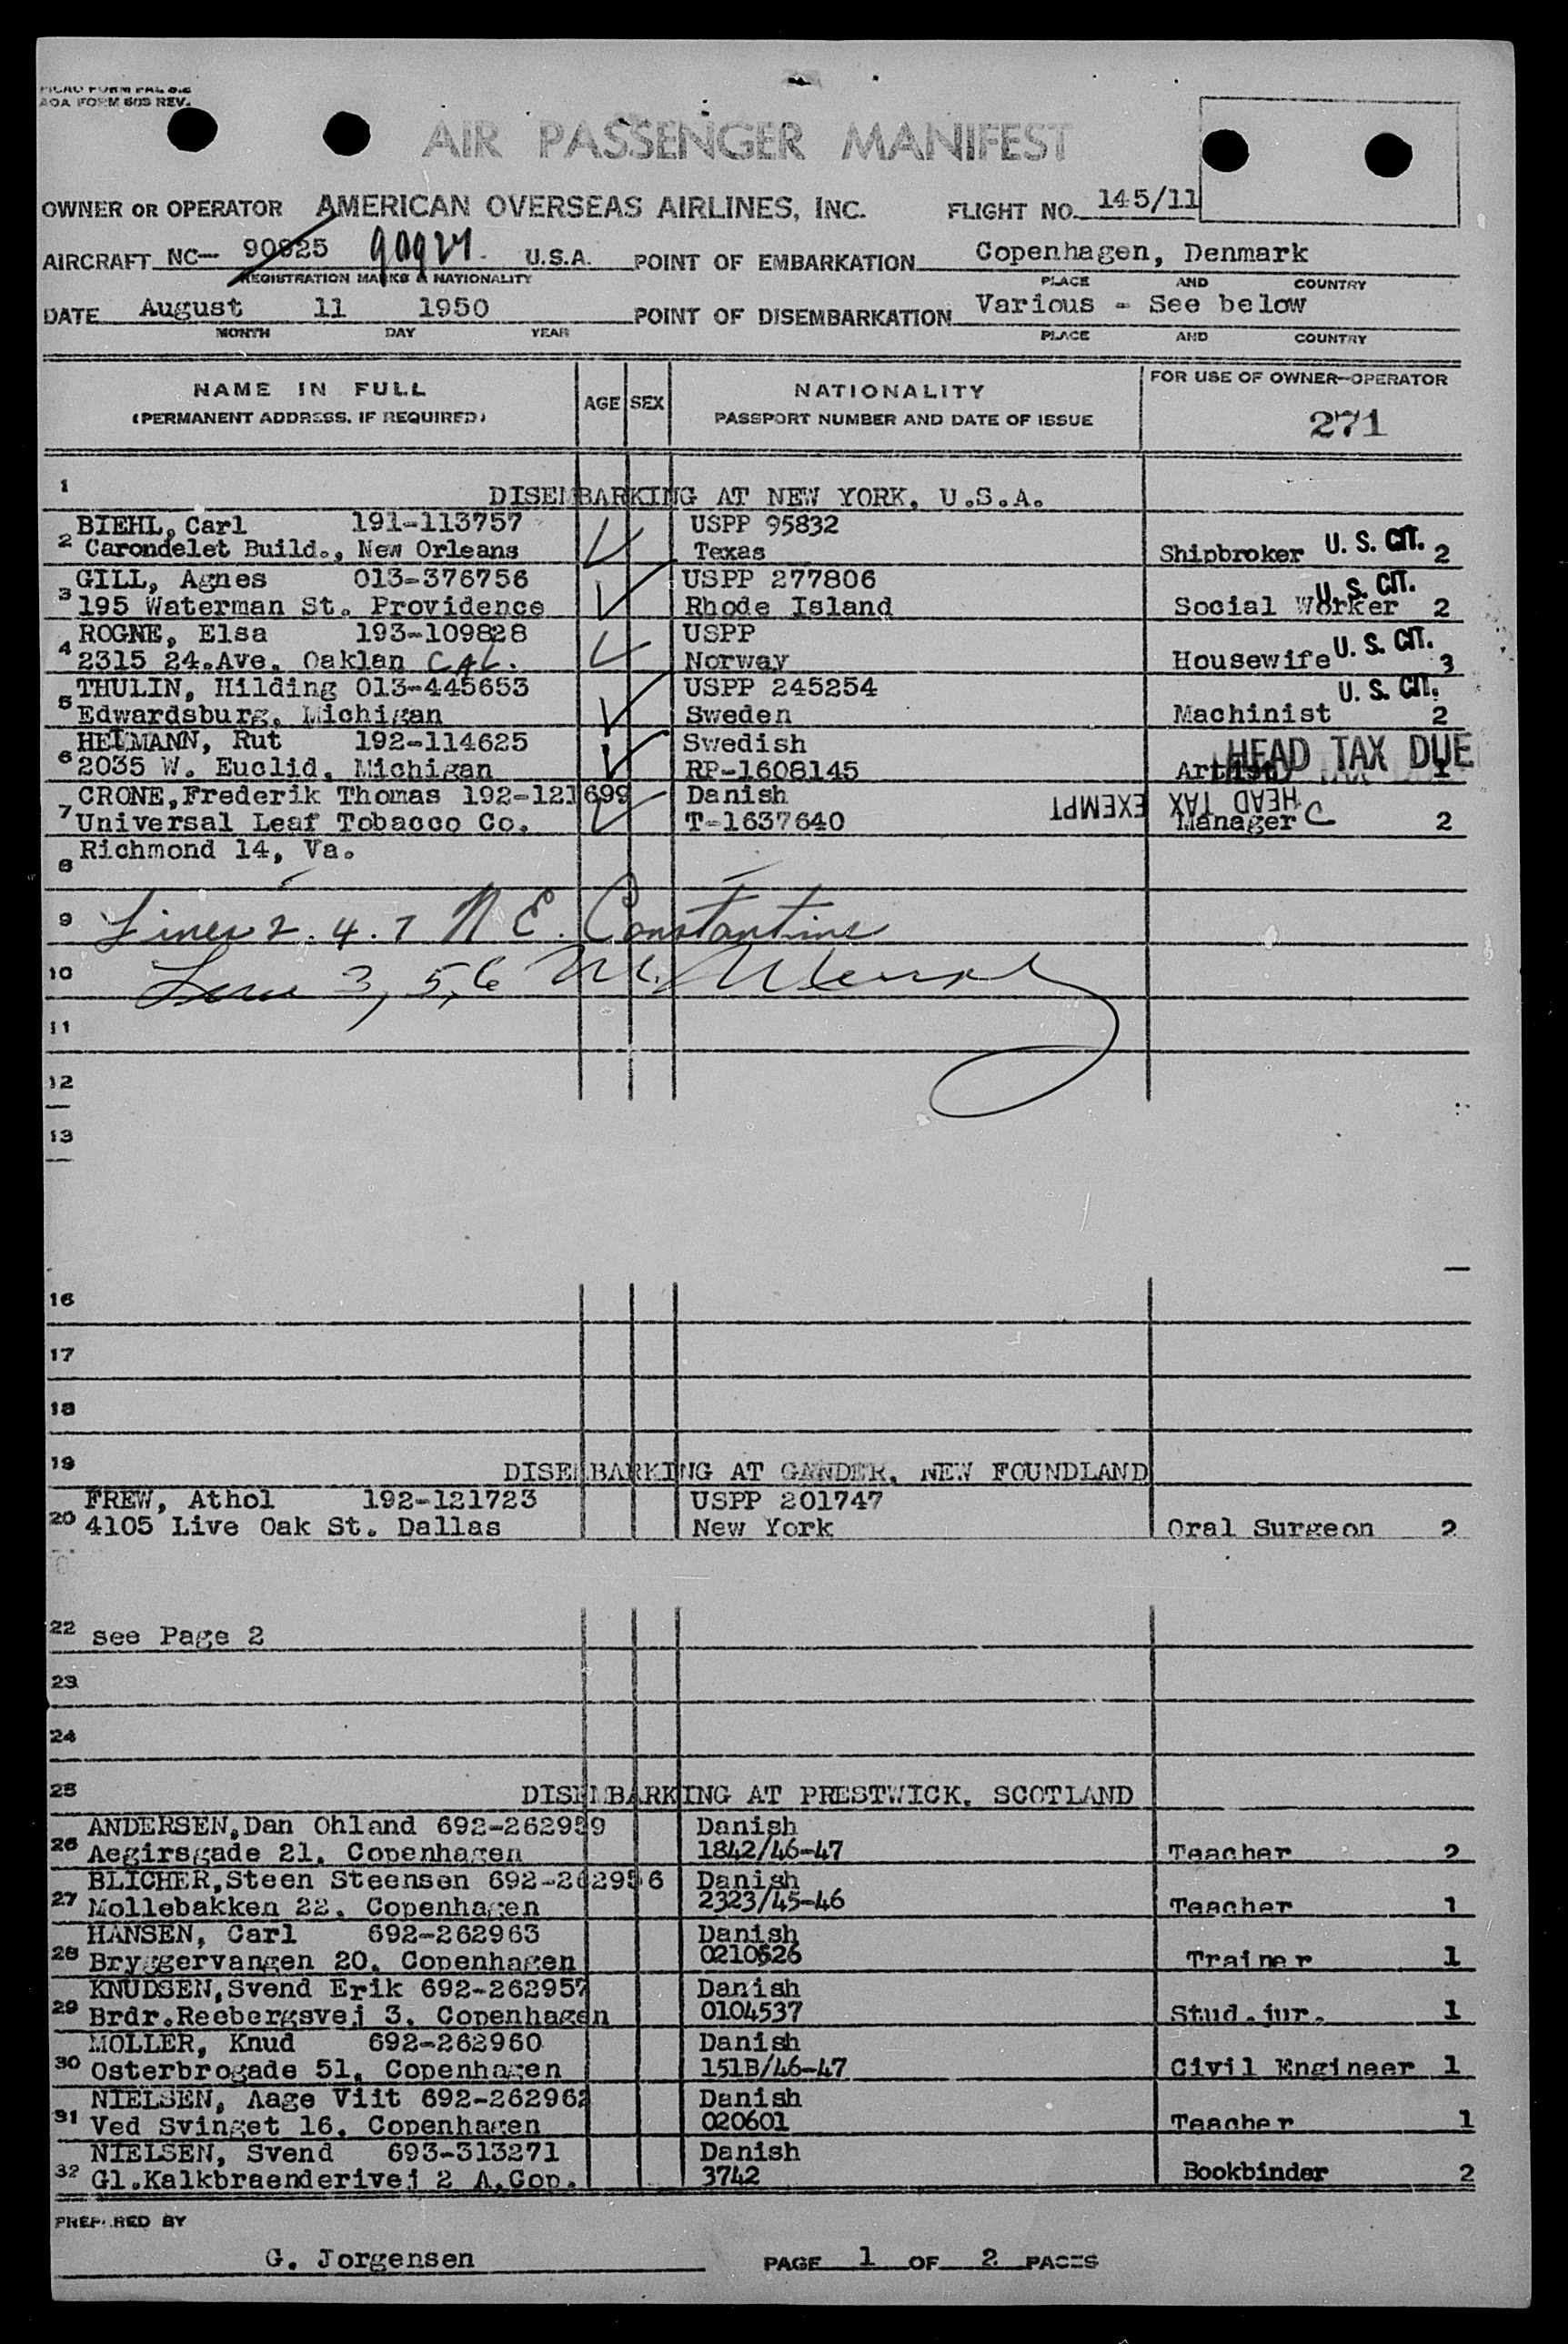 PICAO FORM PAL 8.2
AOA FORM 609 REV.
AIR PASSENGER MANIFEST
OWNER OR OPERATOR AMERICAN OVERSEAS AIRLINES, INC. FLIGHT NO. 145/11
AIRCRAFT NC— 90925 90921. U.S.A. POINT OF EMBARKATION Copenhagen, Denmark
REGISTRATION MARKS & NATIONALITY PLACE AND COUNTRY
DATE August 11 1950 POINT OF DISEMBARKATION Various - See below
MONTH DAY YEAR PLACE AND COUNTRY
NAME IN FULL AGE SEX NATIONALITY FOR USE OF OWNER—OPERATOR
(PERMANENT ADDRESS. IF REQUIRED) PASSPORT NUMBER AND DATE OF ISSUE 271
1 DISEMBARKING AT NEW YORK, U.S.A.
BIEHL, Carl 191-113757 USPP 95832
2 Carondelet Build., New Orleans Texas Shipbroker U. S. CIT. 2
GILL, Agnes 013-376756 USPP 277806 U. S. CIT.
3 195 Waterman St. Providence Rhode Island Social Worker 2
ROGNE, Elsa 193-109828 USPP
4 2315 24.Ave. Oaklan CAL. Norway Housewife U. S. CIT. 3
THULIN, Hilding 013-445653 USPP 245254 U. S. CIT.
5 Edwardsburg, Michigan Sweden Machinist 2
HEIMANN, Rut 192-114625 Swedish HEAD TAX DUE
6 2035 W. Euclid, Michigan RP-1608145 Artist 1
CRONE,Frederik Thomas 192-121699 Danish HEAD TAX EXEMPT
7 Universal Leaf Tobacco Co. T-1637640 Manager C 2
8 Richmond 14, Va.
9 Lines 2. 4. 7 N E. Constantine
10 Line 3, 5, 6 M.
11
12
13
16
17
18
19 DISEMBARKING AT GANDER, NEW FOUNDLAND
FREW, Athol 192-121723 USPP 201747
20 4105 Live Oak St. Dallas New York Oral Surgeon 2
22 see Page 2
23
24
25 DISEMBARKING AT PRESTWICK, SCOTLAND
ANDERSEN,Dan Ohland 692-262959 Danish
26 Aegirsgade 21, Copenhagen 1842/46-47 Teacher 2
BLICHER,Steen Steensen 692-262956 Danish
27 Mollebakken 22, Copenhagen 2323/45-46 Teacher 1
HANSEN, Carl 692-262963 Danish
28 Bryggervangen 20, Copenhagen 0210526 Trainer 1
KNUDSEN,Svend Erik 692-262957 Danish
29 Brdr.Reebergsvej 3, Copenhagen 0104537 Stud.jur. 1
MOLLER, Knud 692-262960 Danish
30 Osterbrogade 51, Copenhagen 151B/46-47 Civil Engineer 1
NIELSEN, Aage Viit 692-262962 Danish
31 Ved Svinget 16, Copenhagen 020601 Teacher 1
NIELSEN, Svend 693-313271 Danish
32 Gl.Kalkbraenderivej 2 A,Cop. 3742 Bookbinder 2
PREPARED BY
G. Jorgensen PAGE 1 OF 2 PAGES